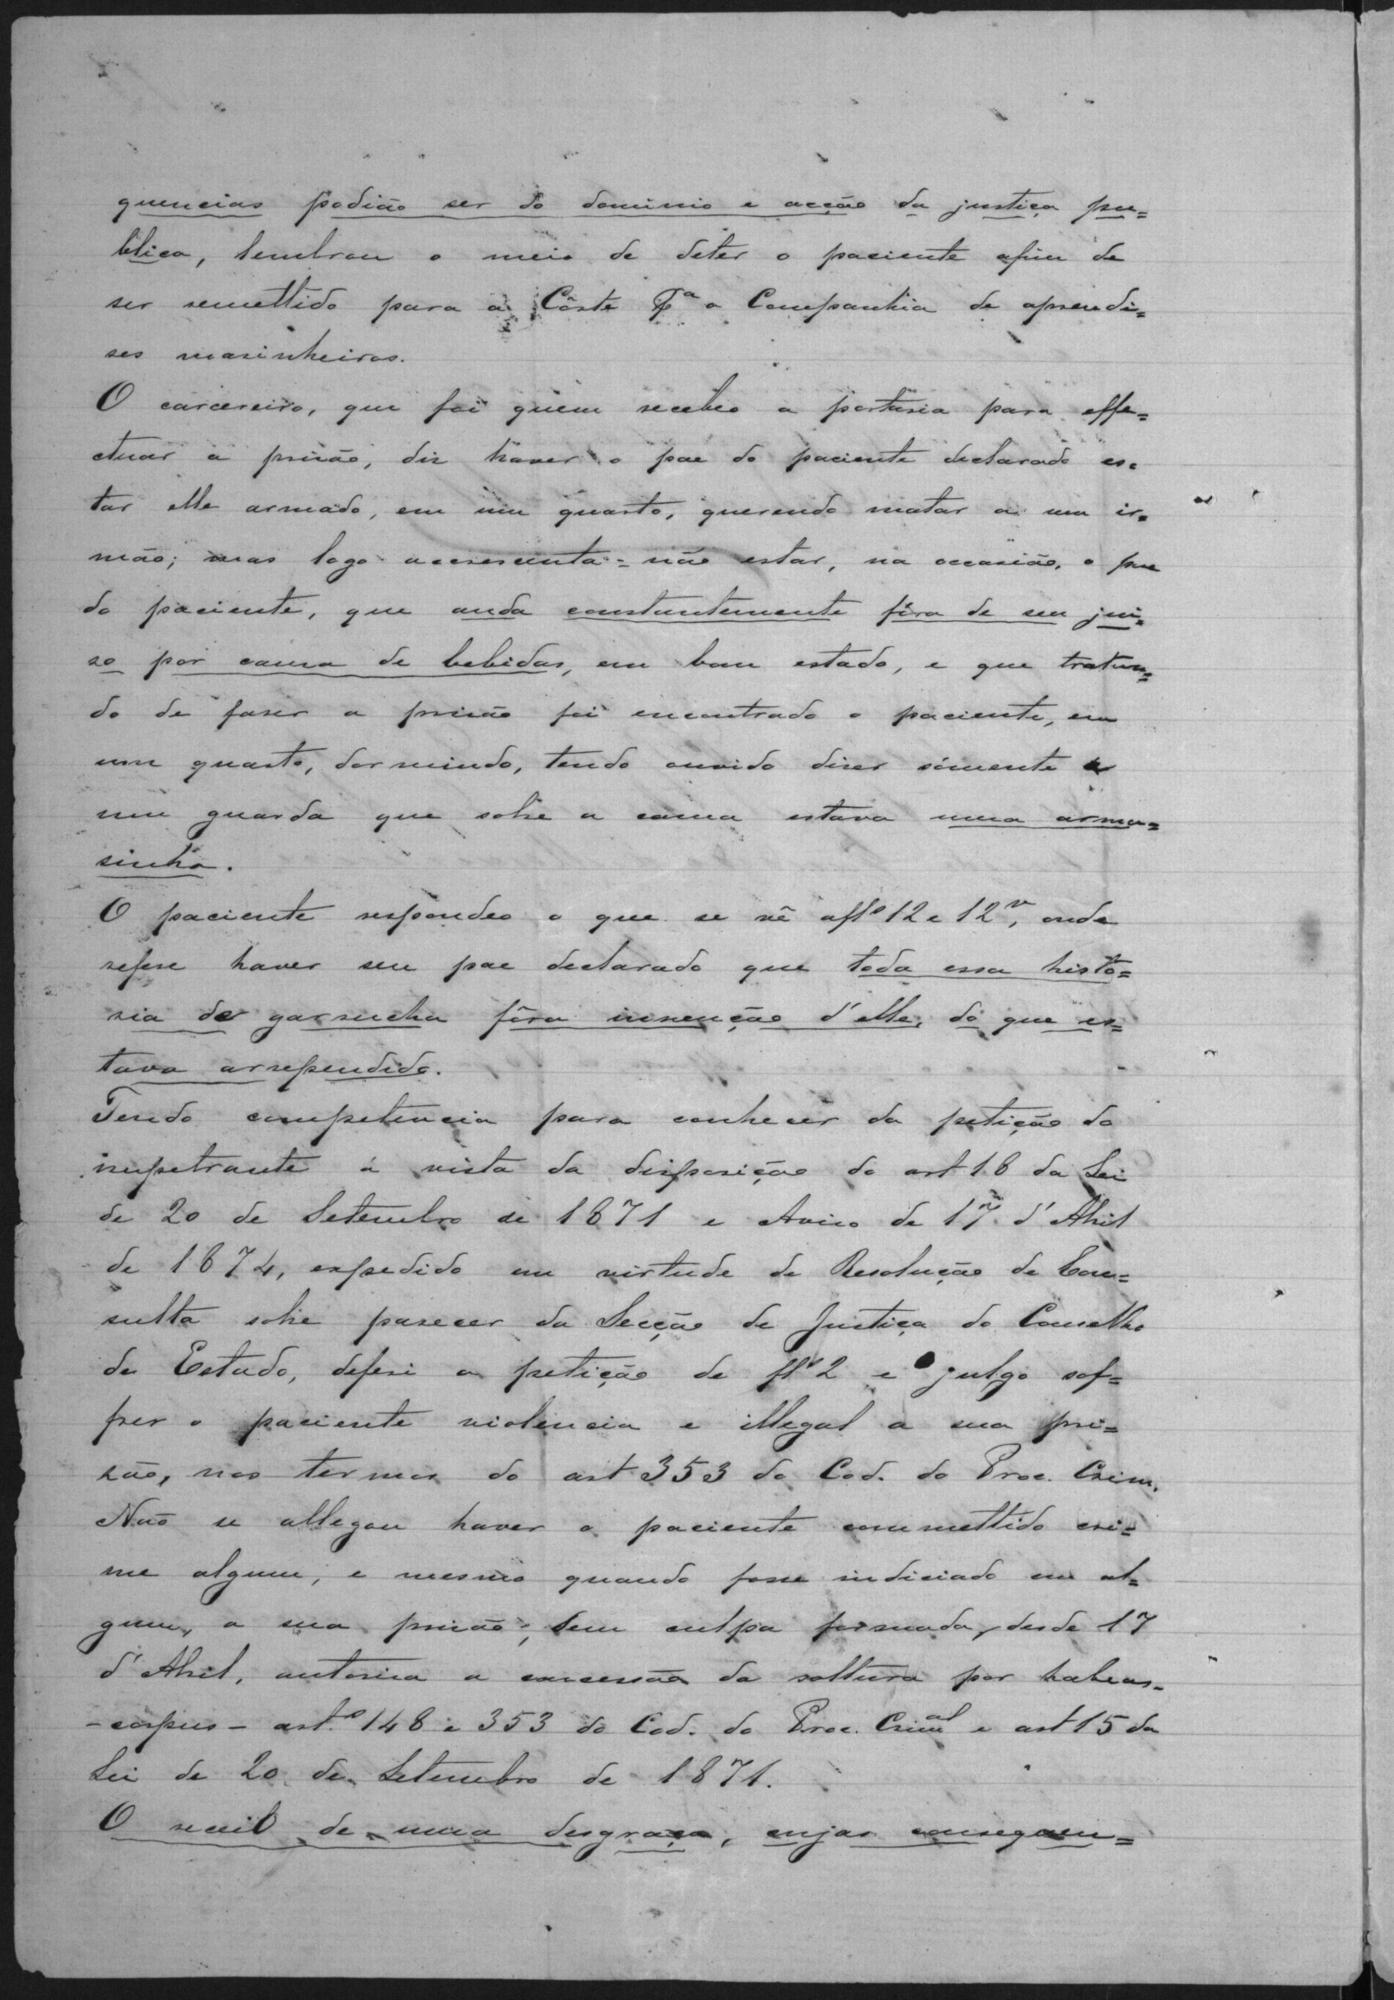 quencias podião ser do dominio e acção da justiça pu=
blica, lembrou o meio de deter o paciente afim de
ser remettido para a Côrte Pª a Companhia de aprendi=
ses marinheiros.
O carcereiro, que foi quem recebeo a portaria para effe=
ctuar a prisão, diz haver o pae do paciente declarado es=
tar elle armado, em um quarto, querendo matar a um ir=
mão; mas logo accrescenta = não estar, na occasião, o pae
do paciente, que anda constantemente fóra de seu jui=
so por causa de bebidas, em bom estado, e que tratan=
do de faser a prisão foi encontrado o paciente, em
um quarto, dormindo, tendo ouvido diser sómente a
um guarda que sobre a cama estava uma arma=
sinha.
O paciente respondeo o que se vê a fls 12 e 12v, onde
refere haver seu pae declarado que toda essa histo=
ria de garrucha fôra invenção d'elle, do que es=
tava arrependido.
Tendo competencia para conhecer da petição do
impetrante á vista da disposição do art 18 da Lei
de 20 de Setembro de 1871 e Aviso de 17 d'Abril
de 1874, expedido em virtude de Resolução de Con=
sulta sobre parecer da Secção de Justiça do Conselho
de Estado, deferi a petição de fls 2 e julgo sof=
frer o paciente violencia e illegal a sua pri=
são, nos termos do art 353 do Cod. do Proc. Crim.
Não se allegou haver o paciente commettido cri=
me algum, e mesmo quando fosse indiciado em al=
gum, a sua prisão, sem culpa formada, desde 17
d'Abril, autorisa a concessão da soltura por habeas-
-corpus - art.º 148 e 353 do Cod. do Proc. Crimal e art 15 da
Lei de 20 de Setembro de 1871.
O receio de uma desgraça, cujas consequen=